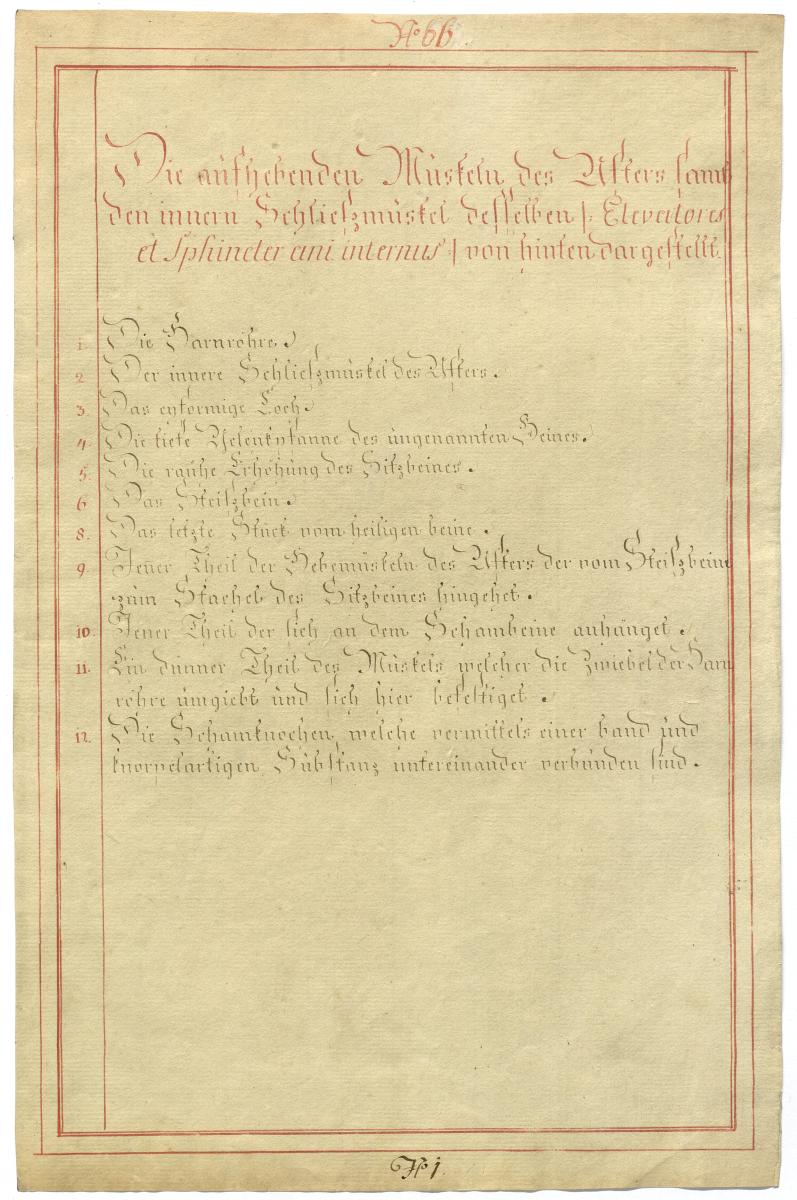 No 66.
Die aufhebenden Müskeln des Afters samt
den innern Schlieszmüskel desselben |: Elevatores
et Sphincter ani internus :| von hinten dargestellt.
1. Die Harnröhre.
2. Der innere Schlieszmüskel des Afters.
3. Das eyformige Loch.
4. Die tiefe Gelenkpfanne des üngenannten Beines.
5. Die raühe Erhöhüng des Sitzbeines.
6. Das Steiszbein.
8. Das letzte Stück vom heiligen beine.
9. Jener Theil der Hebemüskeln des Afters der vom Steiszbeine
züm Stachel des Sitzbeines hingehet.
10. Jener Theil der sich an dem Schambeine anhänget.
11. Ein dünner Theil des Müskels welcher die Zwiebel der Harn
röhre ümgiebt ünd sich hier befestiget.
12. Die Schamknochen, welche vermittels einer band ünd
knorpelartigen Sübstanz üntereinander verbünden sind.
1.